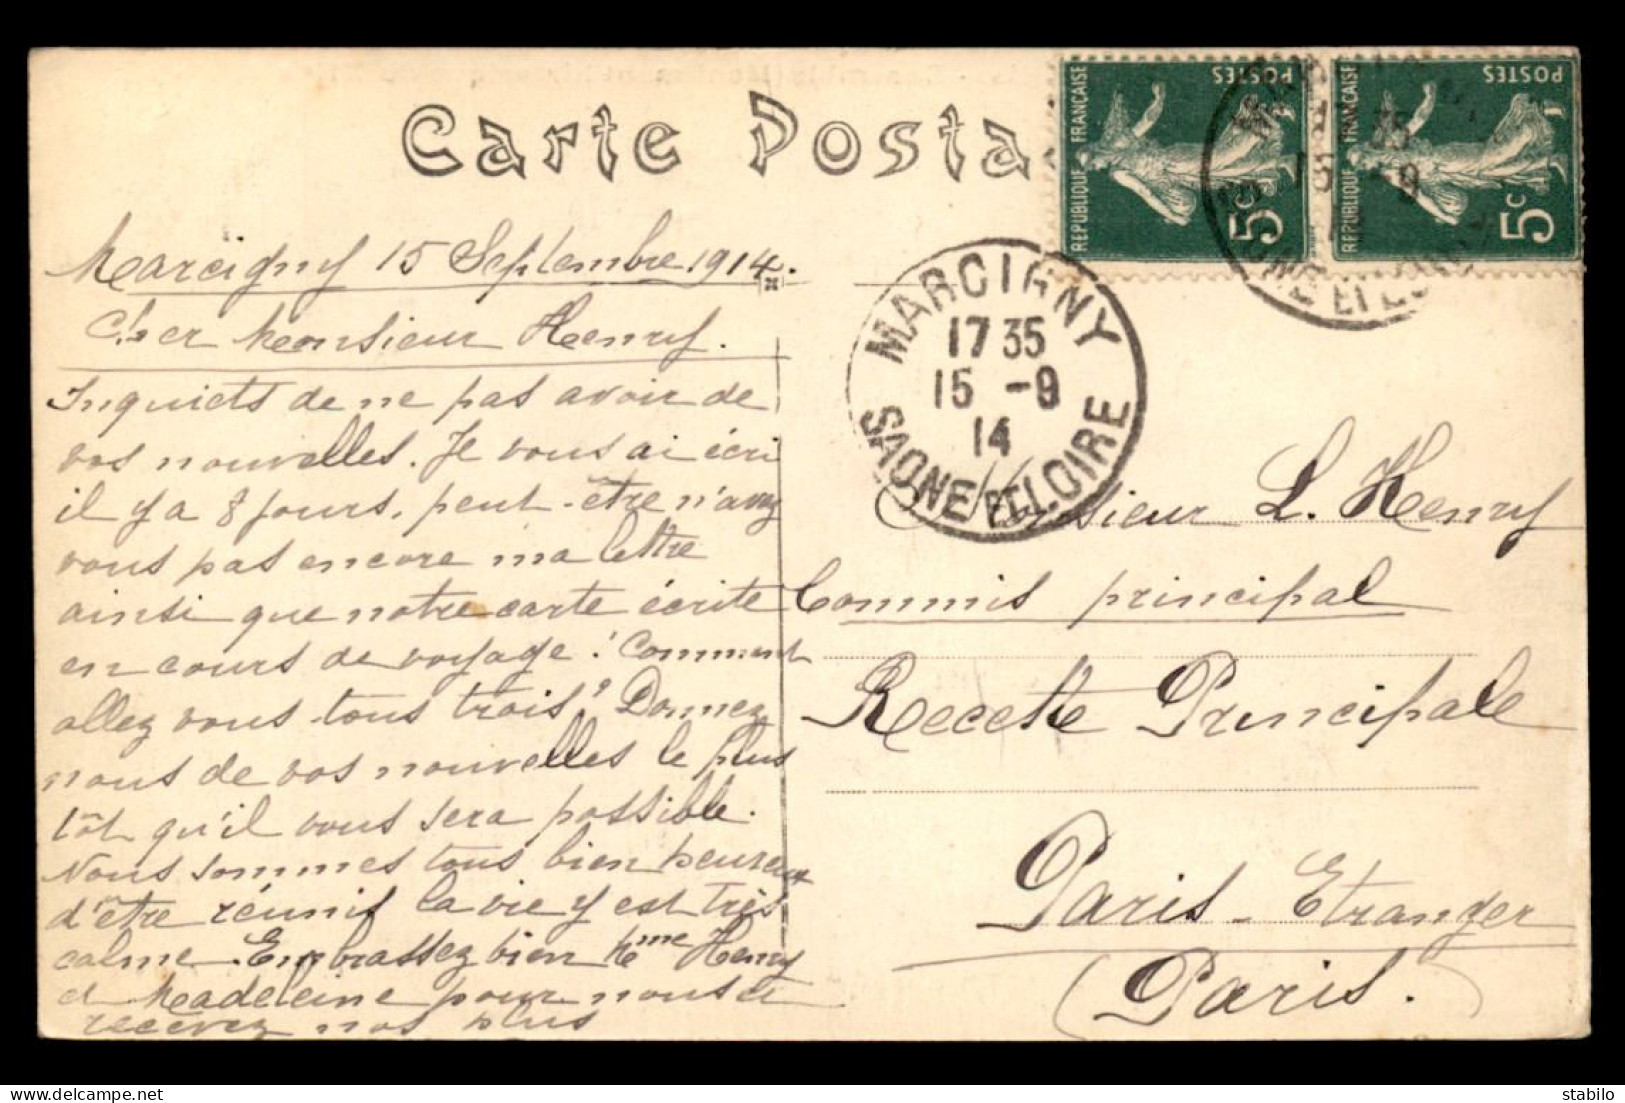 Carte Posta
REPUBLIQUE FRANCAISE
POSTES
5c
REPUBLIQUE FRANCAISE
POSTES
5c
35
15 -9
NE ET LOI
MARCIGNY
17 35
15 -9
14
SAONE ET LOIRE
Marcigny 15 Septembre 1914.
Cher Monsieur Henry.
Inquiets de ne pas avoir de
vos nouvelles. Je vous ai écri
il y a 8 jours, peut-être n'avez
vous pas encore ma lettre
ainsi que notre carte écrite
en cours de voyage! Comment
allez vous tous trois? Donnez
nous de vos nouvelles le plus
tôt qu'il vous sera possible.
Nous sommes tous bien heureux
d'être réunis la vie y est très
calme. Embrassez bien Mme Henry
et Madeleine pour nous et
recevez nos plus
Monsieur L. Henry
Commis principal
Recette Principale
Paris-Etranger
(Paris.
delcampe.net
satublo